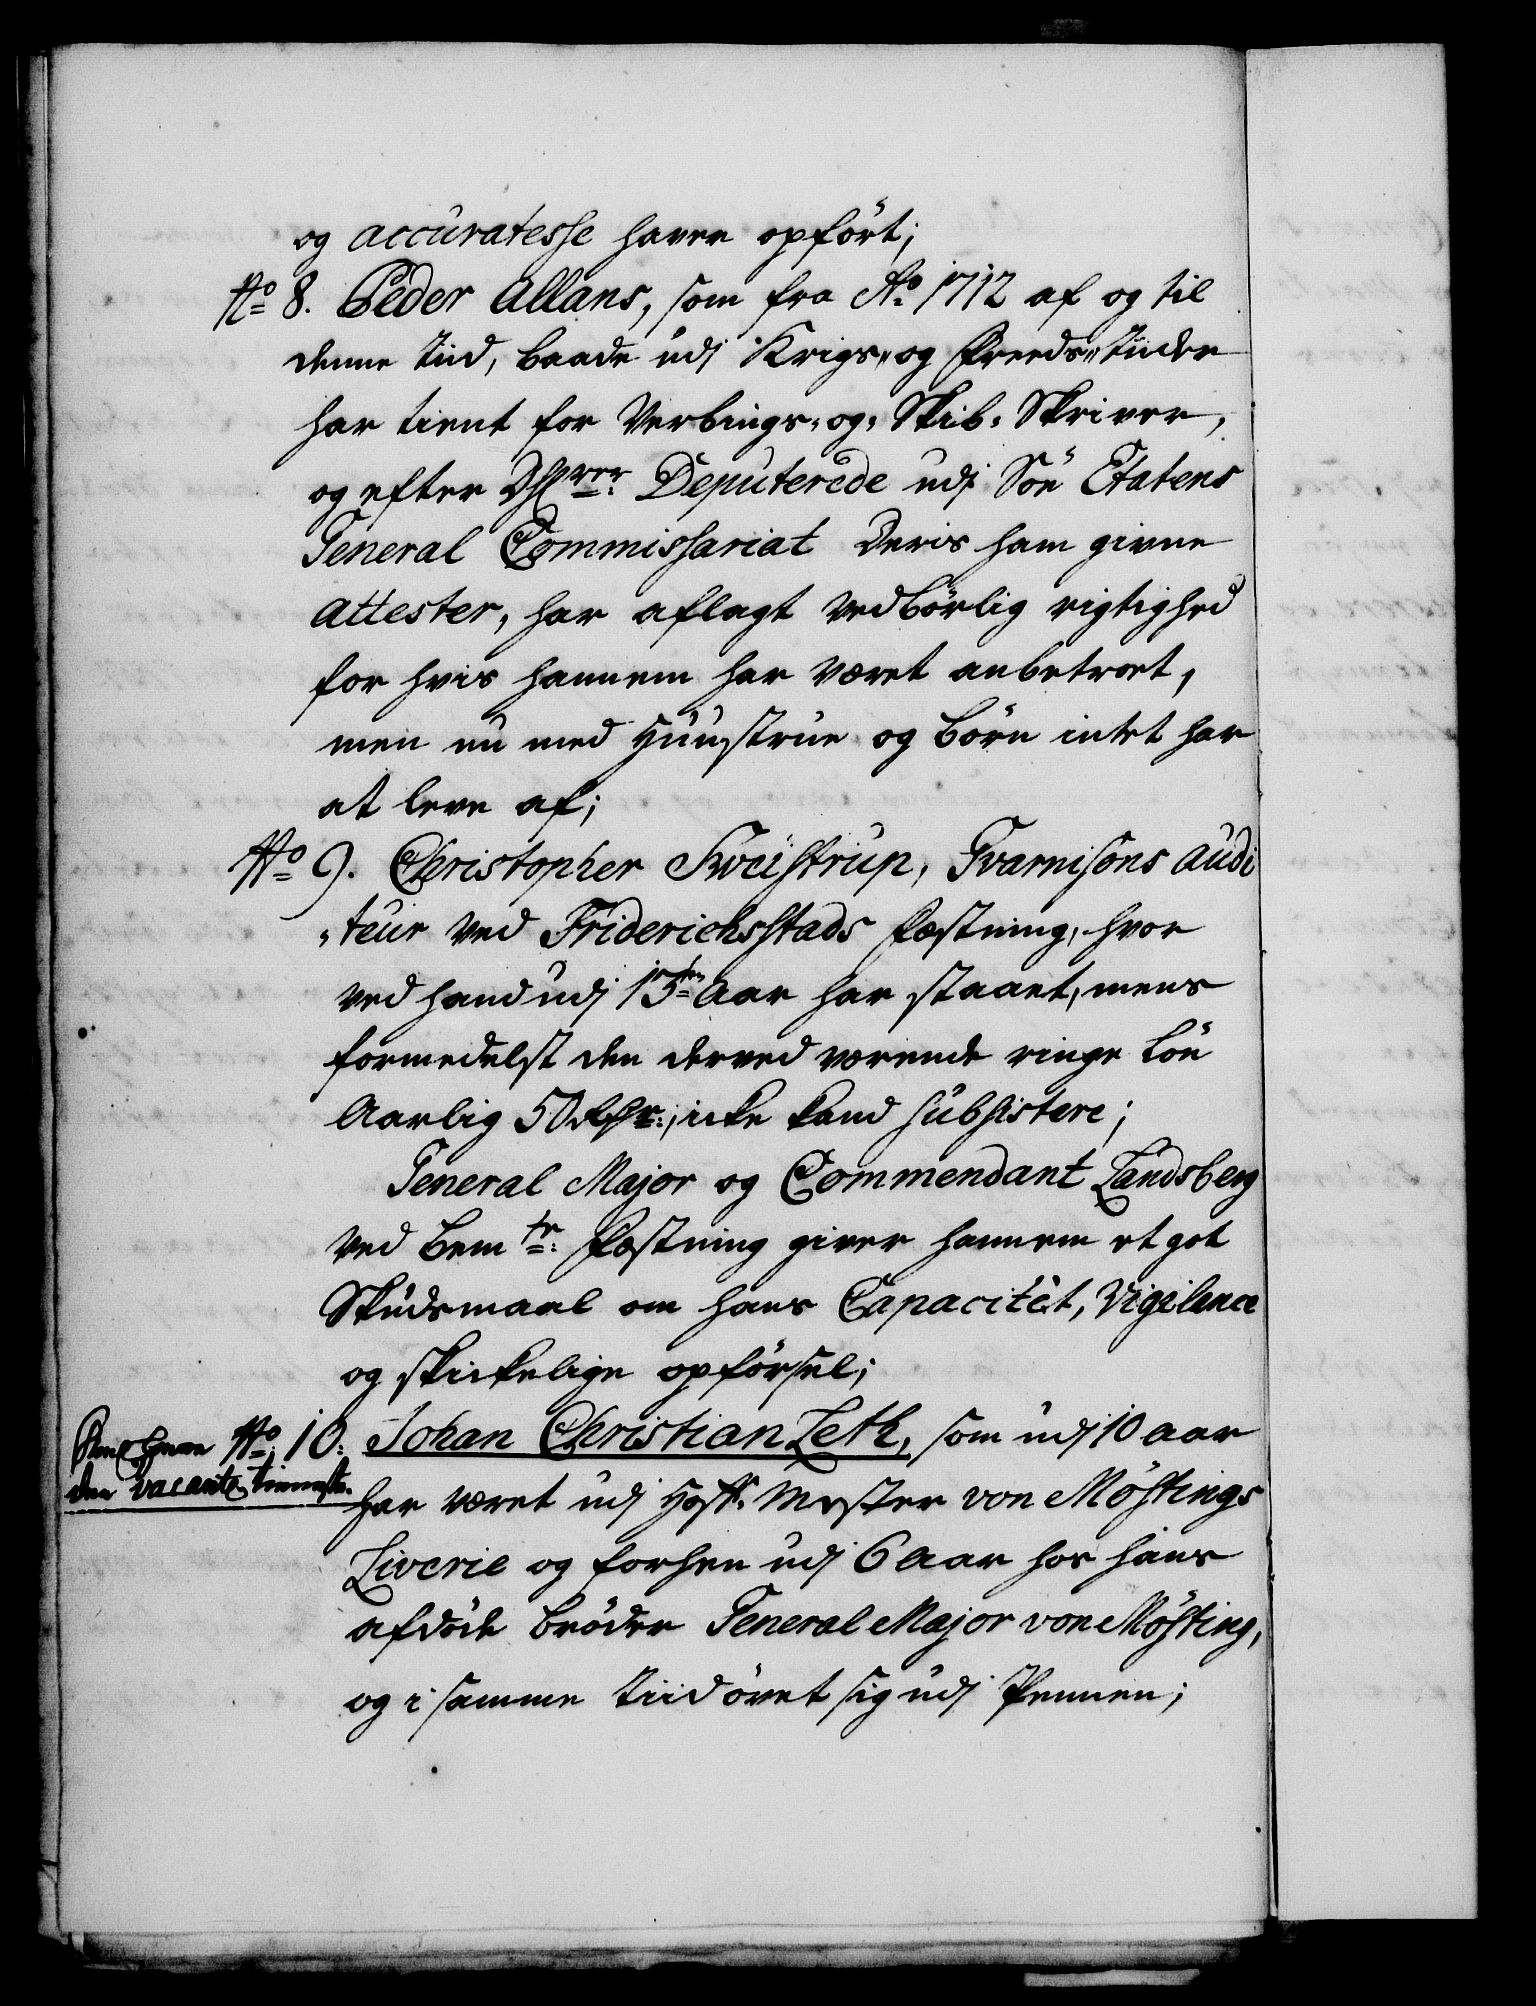 og accuratesse haver opfört;
No 8. Peder Allans, som fra Ao 1712 af og til
denne tiid, baade udj Krigs- og Freeds-tiider
har tient for Verbings- og Skib-Skriver,
og efter DHrrr: Deputerede udj Söe Etatens
General Commissariat deris ham givne
attester, har aflagt vedbörlig rigtighed
for hvis hannem har været anbetroet,
men nu med Huustrue og börn intet har
at leve af;
No 9. Christopher Sveistrup, Gvarnisons audi
-teur ved Friderichsstads Fæstning, hvor
ved hand udj 15ten Aar har staaet, mens
formedelst den derved værende ringe Lön
Aarlig 50 Rdr:, icke kand subsistere;
General Major og Commendant Landsberg
ved bemte: Fæstning giver hannem et got
Skudsmaal om hans Capacitét, Vigilence
og skickelige opförsel;
No 10. Johan Christian Leth, som udj 10 aar
den vacante tienneste.
har været udj Hoff-Mester von Möstings
Liverie og forhen udj 6 Aar hos hans
afdöde broder General Major von Mösting,
og i samme tiid övet sig udj Pennen;